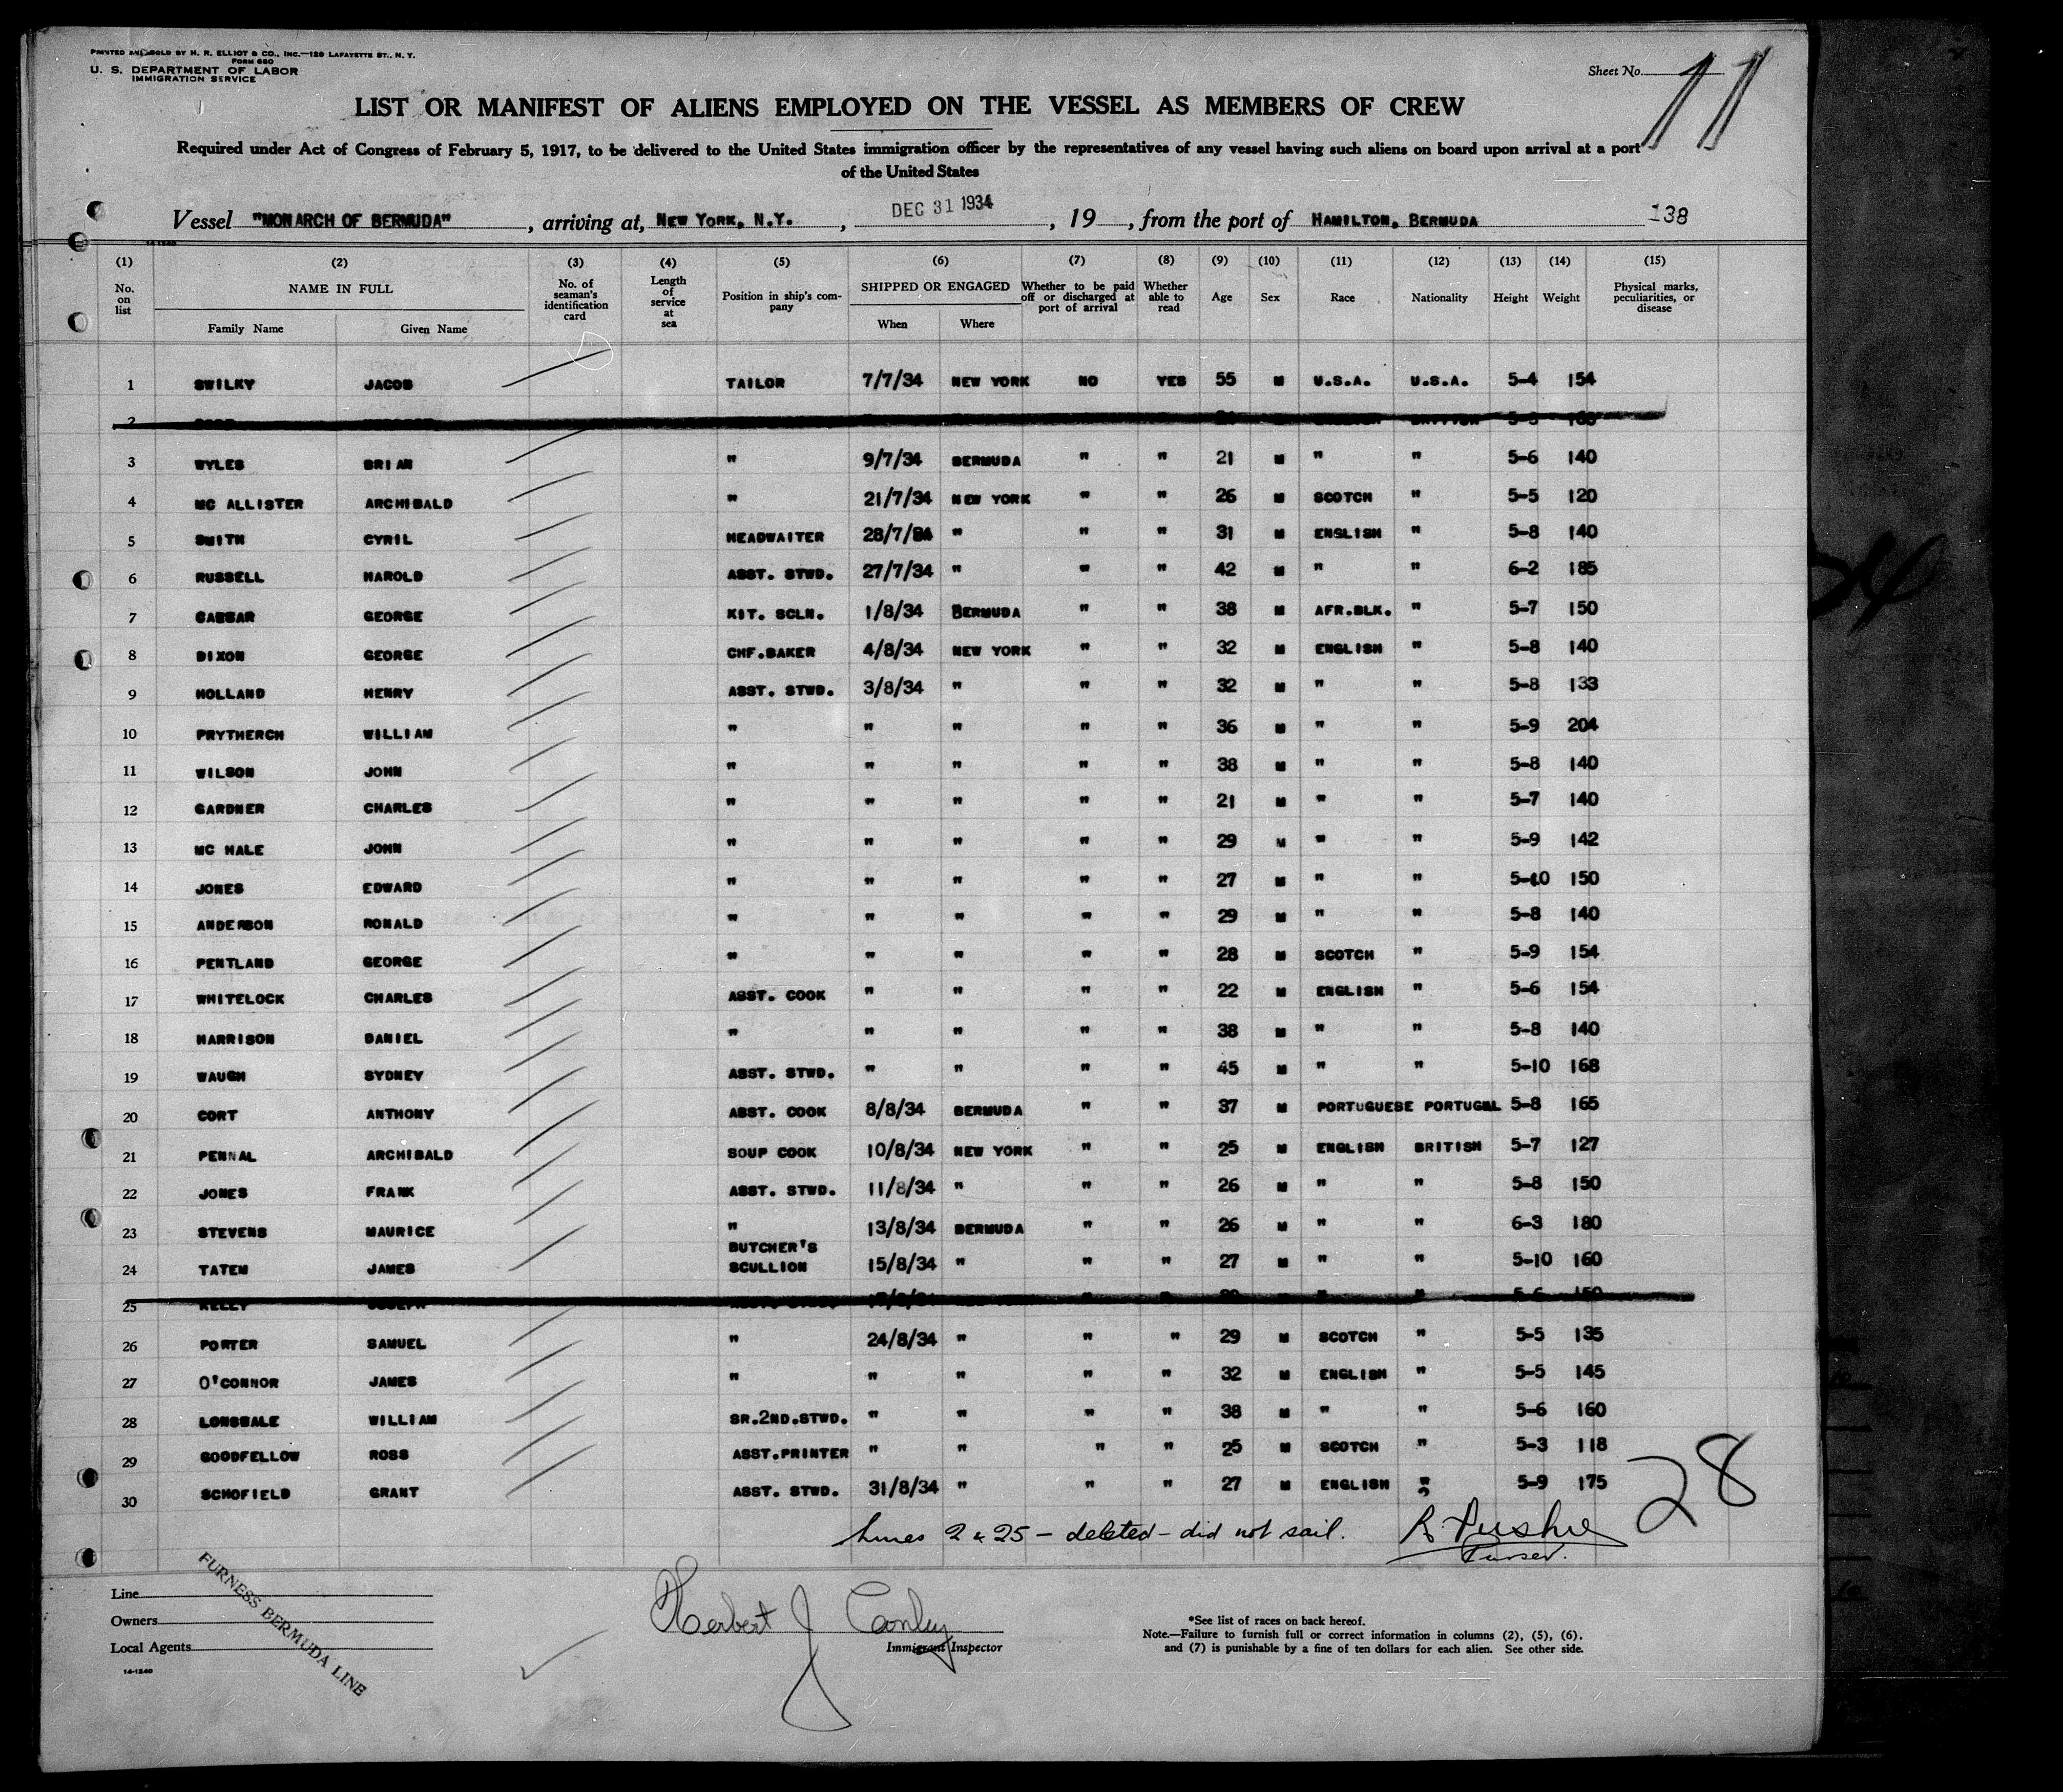 PRINTED AND SOLD BY H. R. ELLIOT & CO., INC.—129 LAFAYETTE ST., N. Y.
FORM 680
U. S. DEPARTMENT OF LABOR
IMMIGRATION SERVICE
Sheet No. 11
LIST OR MANIFEST OF ALIENS EMPLOYED ON THE VESSEL AS MEMBERS OF CREW
Required under Act of Congress of February 5, 1917, to be delivered to the United States immigration officer by the representatives of any vessel having such aliens on board upon arrival at a port
of the United States
Vessel "MONARCH OF BERMUDA", arriving at, NEW YORK, N.Y., DEC 31 1934, 19 , from the port of HAMILTON, BERMUDA 138
14-1240
(1) (2) (3) (4) (5) (6) (7) (8) (9) (10) (11) (12) (13) (14) (15)
No. on list NAME IN FULL Family Name Given Name No. of seaman's identification card Length of service at sea Position in ship's company SHIPPED OR ENGAGED When Where Whether to be paid off or discharged at port of arrival Whether able to read Age Sex Race Nationality Height Weight Physical marks, peculiarities, or disease
1 SWILKY JACOB TAILOR 7/7/34 NEW YORK NO YES 55 M U.S.A. U.S.A. 5-4 154
2
3 WYLES BRIAN " 9/7/34 BERMUDA " " 21 M " " 5-6 140
4 MC ALLISTER ARCHIBALD " 21/7/34 NEW YORK " " 26 M SCOTCH " 5-5 120
5 SMITH CYRIL HEADWAITER 28/7/34 " " " 31 M ENGLISH " 5-8 140
6 RUSSELL HAROLD ASST. STWD. 27/7/34 " " " 42 M " " 6-2 185
7 CAESAR GEORGE KIT. SCLN. 1/8/34 BERMUDA " " 38 M AFR.BLK. " 5-7 150
8 DIXON GEORGE CHF.BAKER 4/8/34 NEW YORK " " 32 M ENGLISH " 5-8 140
9 HOLLAND HENRY ASST. STWD. 3/8/34 " " " 32 M " " 5-8 133
10 PRYTHERCH WILLIAM " " " " " 36 M " " 5-9 204
11 WILSON JOHN " " " " " 38 M " " 5-8 140
12 GARDNER CHARLES " " " " " 21 M " " 5-7 140
13 MC HALE JOHN " " " " " 29 M " " 5-9 142
14 JONES EDWARD " " " " " 27 M " " 5-10 150
15 ANDERSON RONALD " " " " " 29 M " " 5-8 140
16 PENTLAND GEORGE " " " " " 28 M SCOTCH " 5-9 154
17 WHITELOCK CHARLES ASST. COOK " " " " 22 M ENGLISH " 5-6 154
18 HARRISON DANIEL " " " " " 38 M " " 5-8 140
19 WAUGH SYDNEY ASST. STWD. " " " " 45 M " " 5-10 168
20 CORT ANTHONY ASST. COOK 8/8/34 BERMUDA " " 37 M PORTUGUESE PORTUGAL 5-8 165
21 PENNAL ARCHIBALD SOUP COOK 10/8/34 NEW YORK " " 25 M ENGLISH BRITISH 5-7 127
22 JONES FRANK ASST. STWD. 11/8/34 " " " 26 M " " 5-8 150
23 STEVENS MAURICE " 13/8/34 BERMUDA " " 26 M " " 6-3 180
24 TATEM JAMES BUTCHER'S SCULLION 15/8/34 " " " 27 M " " 5-10 160
25 KELLY JOSEPH " " " " 5-6 150
26 PORTER SAMUEL " 24/8/34 " " " 29 M SCOTCH " 5-5 135
27 O'CONNOR JAMES " " " " " 32 M ENGLISH " 5-5 145
28 LONSDALE WILLIAM SR.2ND.STWD. " " " " 38 M " " 5-6 160
29 GOODFELLOW ROSS ASST.PRINTER " " " " 25 M SCOTCH " 5-3 118
30 SCHOFIELD GRANT ASST. STWD. 31/8/34 " " " 27 M ENGLISH " 5-9 175
28
Lines 2 & 25 — deleted — did not sail.
Purser.
Line
Owners
Local Agents
FURNESS BERMUDA LINE
14-1240
Herbert J Conley
Immigrant Inspector
*See list of races on back hereof.
Note.—Failure to furnish full or correct information in columns (2), (5), (6),
and (7) is punishable by a fine of ten dollars for each alien. See other side.